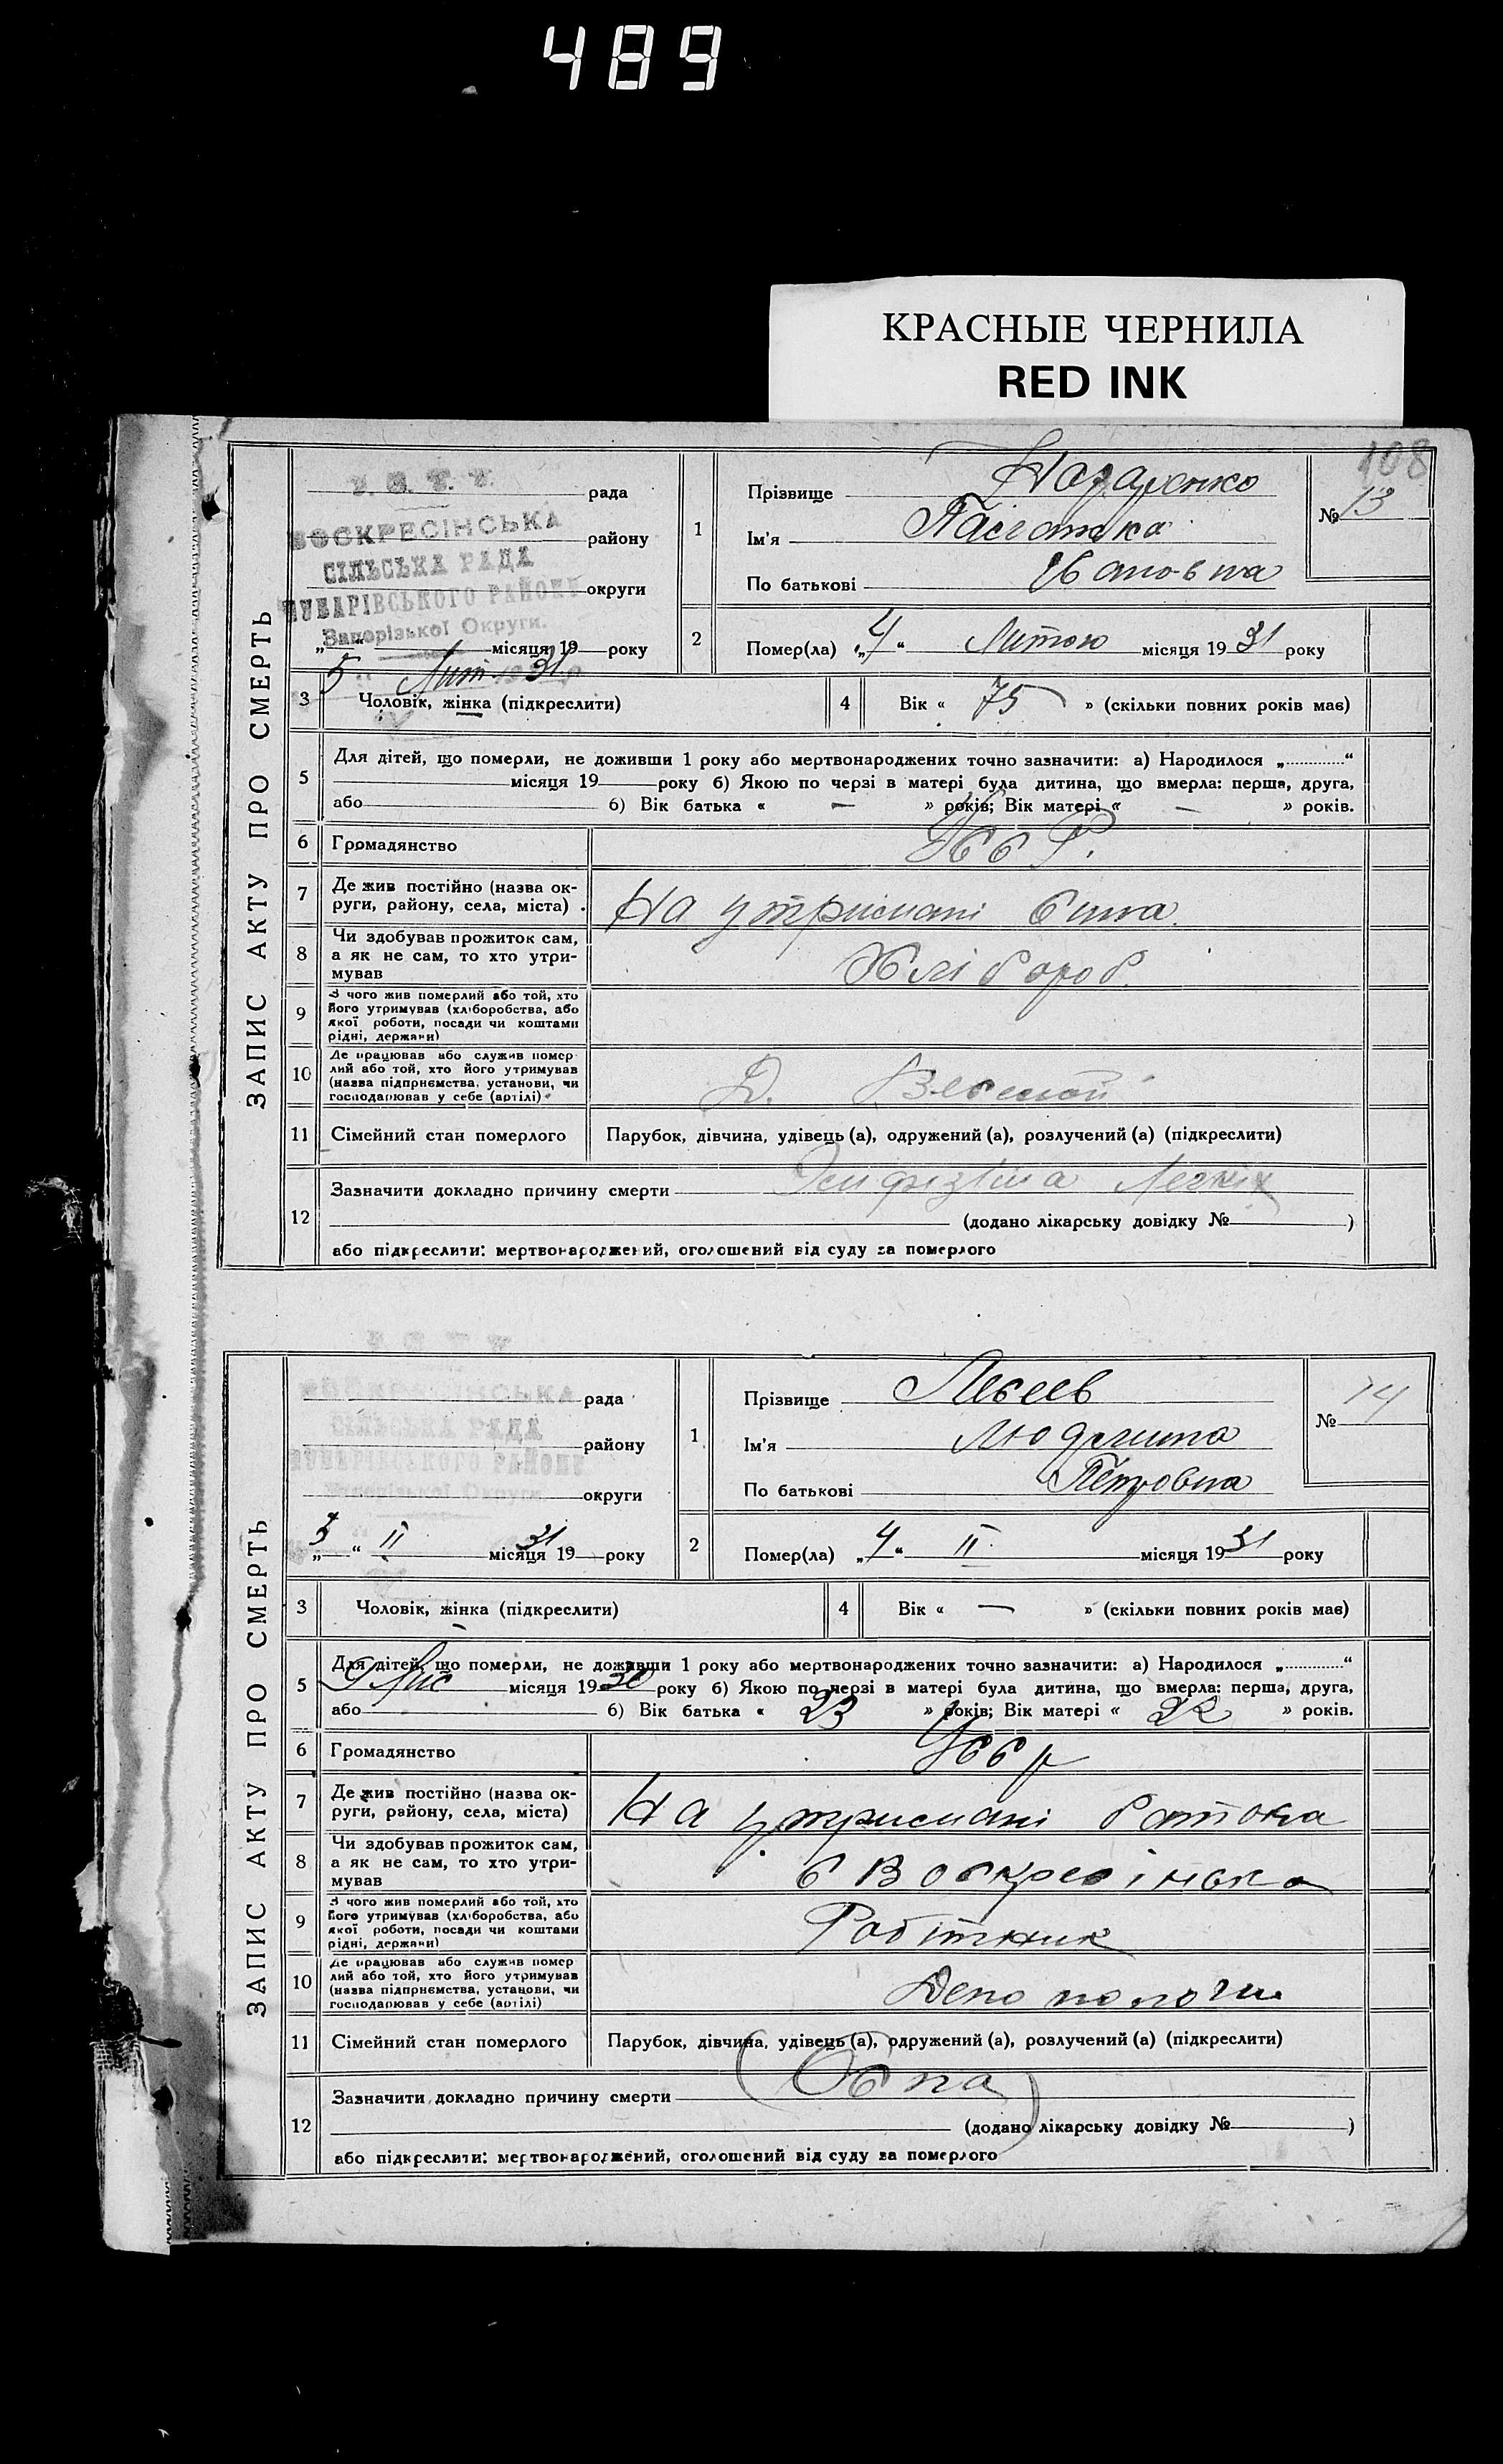 489
КРАСНЫЕ ЧЕРНИЛА
RED INK
108
ЗАПИС АКТУ ПРО СМЕРТЬ
У. С. Р. Р.
рада
ВОСКРЕСІНСЬКА
району
СІЛЬСЬКА РАДА
округи
ЧУБАРІВСЬКОГО РАЙОНУ
Запорізької Округи.
„ “ місяця 19 року
5 Лют 31
1
Прізвище Назаренко
Ім'я
По батькові Ивановна
№ 13
2
Помер(ла) „4“ Лютого місяця 1931 року
3
Чоловік, жінка (підкреслити)
4
Вік « 75 » (скільки повних років має)
5
Для дітей, що померли, не доживши 1 року або мертвонароджених точно зазначити: а) Народилося „ “
місяця 19 року б) Якою по черзі в матері була дитина, що вмерла: перша, друга,
або б) Вік батька « — » років; Вік матері « — » років.
6
Громадянство УССР.
7
Де жив постійно (назва ок-
руги, району, села, міста) .
На утримані сина
8
Чи здобував прожиток сам,
а як не сам, то хто утри-
мував
Хлібороб.
9
З чого жив померлий або той, хто
його утримував (хліборобства, або
якої роботи, посади чи коштами
рідні, держави)
10
Де працював або служив помер
лий або той, хто його утримував
(назва підприємства, установи, чи
господарював у себе (артілі)
Д.
11
Сімейний стан померлого
Парубок, дівчина, удівець (а), одружений (а), розлучений (а) (підкреслити)
12
Зазначити докладно причину смерти Легких
(додано лікарську довідку № )
або підкреслити: мертвонароджений, оголошений від суду за померлого
ЗАПИС АКТУ ПРО СМЕРТЬ
У. С. Р. Р.
ВОСКРЕСІНСЬКА
рада
СІЛЬСЬКА РАДА
району
ЧУБАРІВСЬКОГО РАЙОНУ
Запорізької Округи
округи
„ “ II 31 місяця 19 року
1
Прізвище
Ім'я Людмила
По батькові Петровна
№ 14
2
Помер(ла) „4“ II місяця 1931 року
3
Чоловік, жінка (підкреслити)
4
Вік « — » (скільки повних років має)
5
Для дітей, що померли, не доживши 1 року або мертвонароджених точно зазначити: а) Народилося „ “
місяця 1930 року б) Якою по черзі в матері була дитина, що вмерла: перша, друга,
або б) Вік батька « 23 » років; Вік матері « 22 » років.
6
Громадянство УССР
7
Де жив постійно (назва ок-
руги, району, села, міста)
На утримані батька
8
Чи здобував прожиток сам,
а як не сам, то хто утри-
мував
с Воскресінька
9
З чого жив померлий або той, хто
його утримував (хліборобства, або
якої роботи, посади чи коштами
рідні, держави)
Робітник
10
Де працював або служив помер
лий або той, хто його утримував
(назва підприємства, установи, чи
господарював у себе (артілі)
Депо пологи
11
Сімейний стан померлого
Парубок, дівчина, удівець (а), одружений (а), розлучений (а) (підкреслити)
12
Зазначити докладно причину смерти (Оспа)
(додано лікарську довідку № )
або підкреслити: мертвонароджений, оголошений від суду за померлого